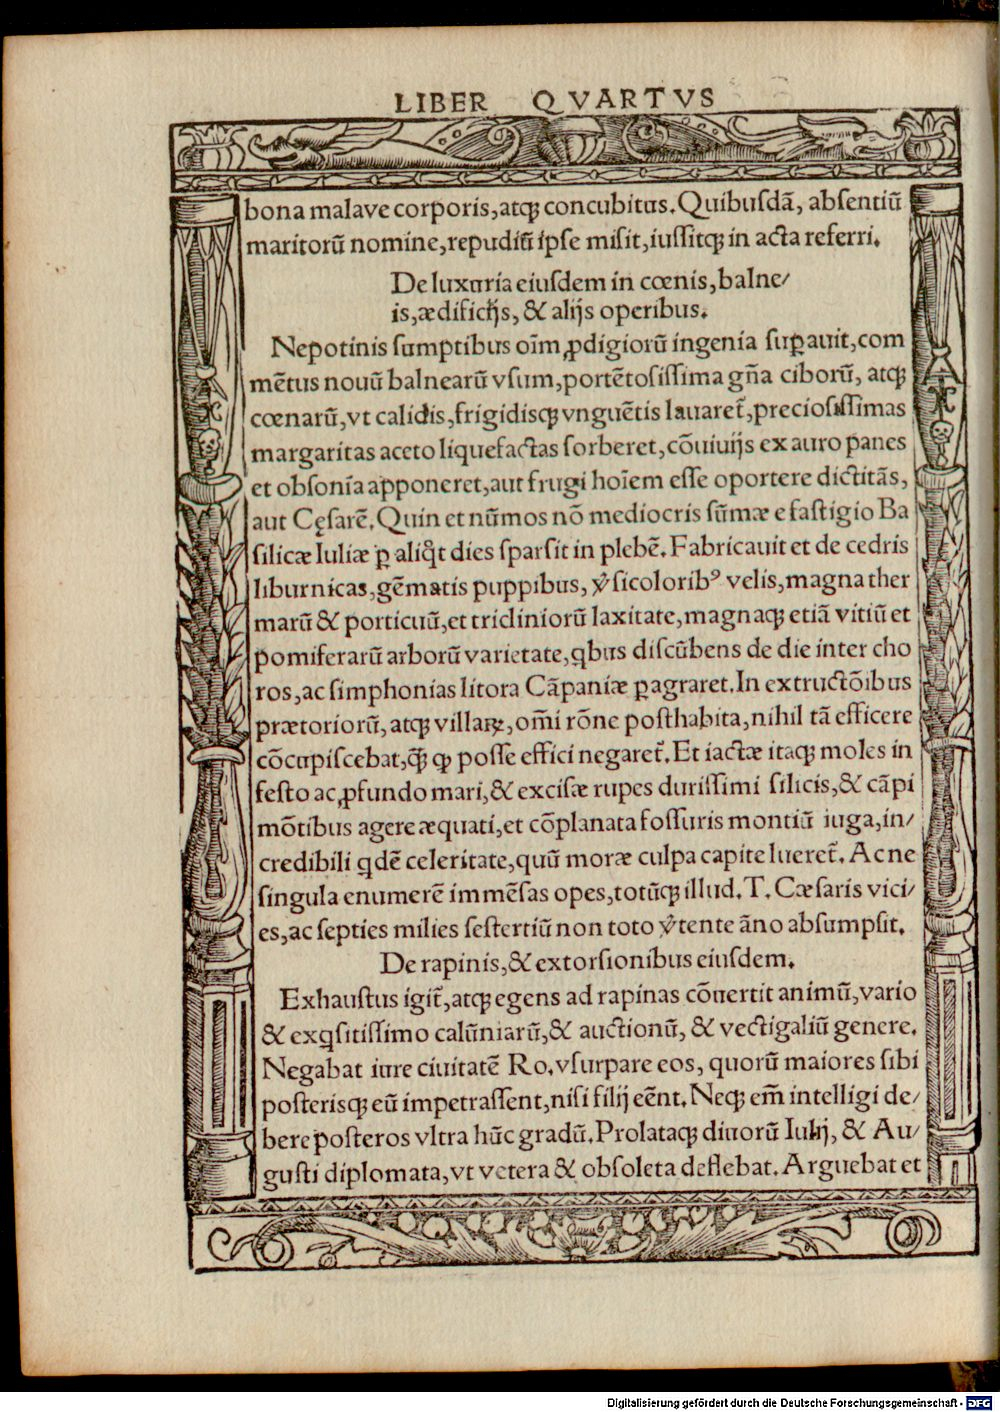 LIBER QVARTVS
bona malave corporis, atqꝫ concubitus. Quibusdã, absentiũ
maritorũ nomine, repudiũ ipse misit, iussitqꝫ in acta referri.
De luxuria eiusdem in cœnis, balne/
is, ædificijs, & alijs operibus.
Nepotinis sumptibus oĩm ꝓdigiorũ ingenia suꝑauit, com
mẽtus nouũ balnearũ vsum, portẽtosissima gña ciborũ, atqꝫ
cœnarũ, vt calidis, frigidisqꝫ vnguẽtis lauaret̃, preciosissimas
margaritas aceto liquefactas sorberet, cõuiuijs ex auro panes
et obsonia apponeret, aut frugi hoĩem esse oportere dictitãs,
aut Cęsarẽ. Quin et nũmos nõ mediocris sũmæ e fastigio Ba
silicæ Iuliæ ꝑ aliq̃t dies sparsit in plebẽ. Fabricauit et de cedris
liburnicas, gẽmatis puppibus, v̉sicoloribꝰ velis, magna ther
marũ & porticuũ, et tricliniorũ laxitate, magnaqꝫ etiã vitiũ et
pomiferarũ arborũ varietate, qbus discũbens de die inter cho
ros, ac simphonias litora Cãpaniæ ꝑagraret. In extructõibus
prætoriorũ, atqꝫ villaꝝ, om̃i rõne posthabita, nihil tã efficere
cõcupiscebat, q̃ꝫ ꝙ posse effici negaret̃. Et iactæ itaqꝫ moles in
festo ac ꝓfundo mari, & excisæ rupes durissimi silicis, & cãpi
mõtibus agere æquati, et cõplanata fossuris montiũ iuga, in/
credibili qdẽ celeritate, quũ moræ culpa capite lueret̃. Ac ne
singula enumerẽ immẽsas opes, totũqꝫ illud. T. Cæsaris vici/
es, ac septies milies sestertiũ non toto v̉tente ãno absumpsit.
De rapinis, & extorsionibus eiusdem.
Exhaustus igit̃, atqꝫ egens ad rapinas cõuertit animũ, vario
& exqsitissimo calũniarũ, & auctionũ, & vectigaliũ genere.
Negabat iure ciuitatẽ Ro. vsurpare eos, quorũ maiores sibi
posterisqꝫ eũ impetrassent, nisi filij eẽnt. Neqꝫ em̃ intelligi de/
bere posteros vltra hũc gradũ. Prolataqꝫ diuorũ Iulij, & Au/
gusti diplomata, vt vetera & obsoleta deflebat. Arguebat et
Digitalisierung gefördert durch die Deutsche Forschungsgemeinschaft - DFG